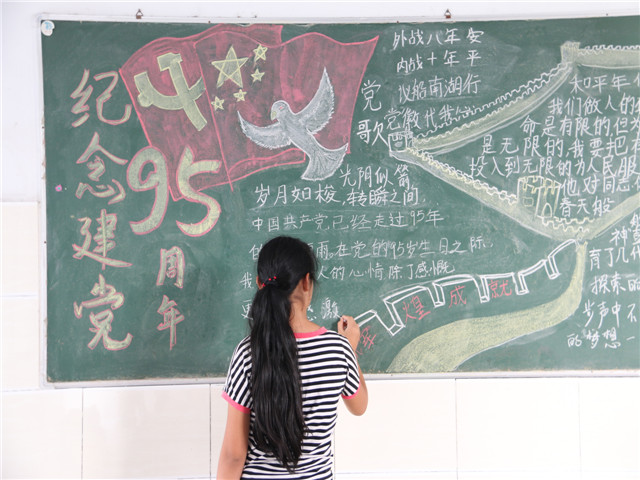 纪念建党
95
周年
党歌
外战八年安
内战十年平
议船南湖行
党徽代我
岁月如梭,光阴似箭
转瞬之间,
中国共产党已经走过95年
雨,在党的95岁生日之际,
我 人的心情除了感慨
更 感激
辉煌成就
和平年
我们做人的
命是有限的,但为
是无限的,我要把有
投入到无限的为人民服
他对同志
春天般
神
育了几代
探索的
步声中不
的梦想一